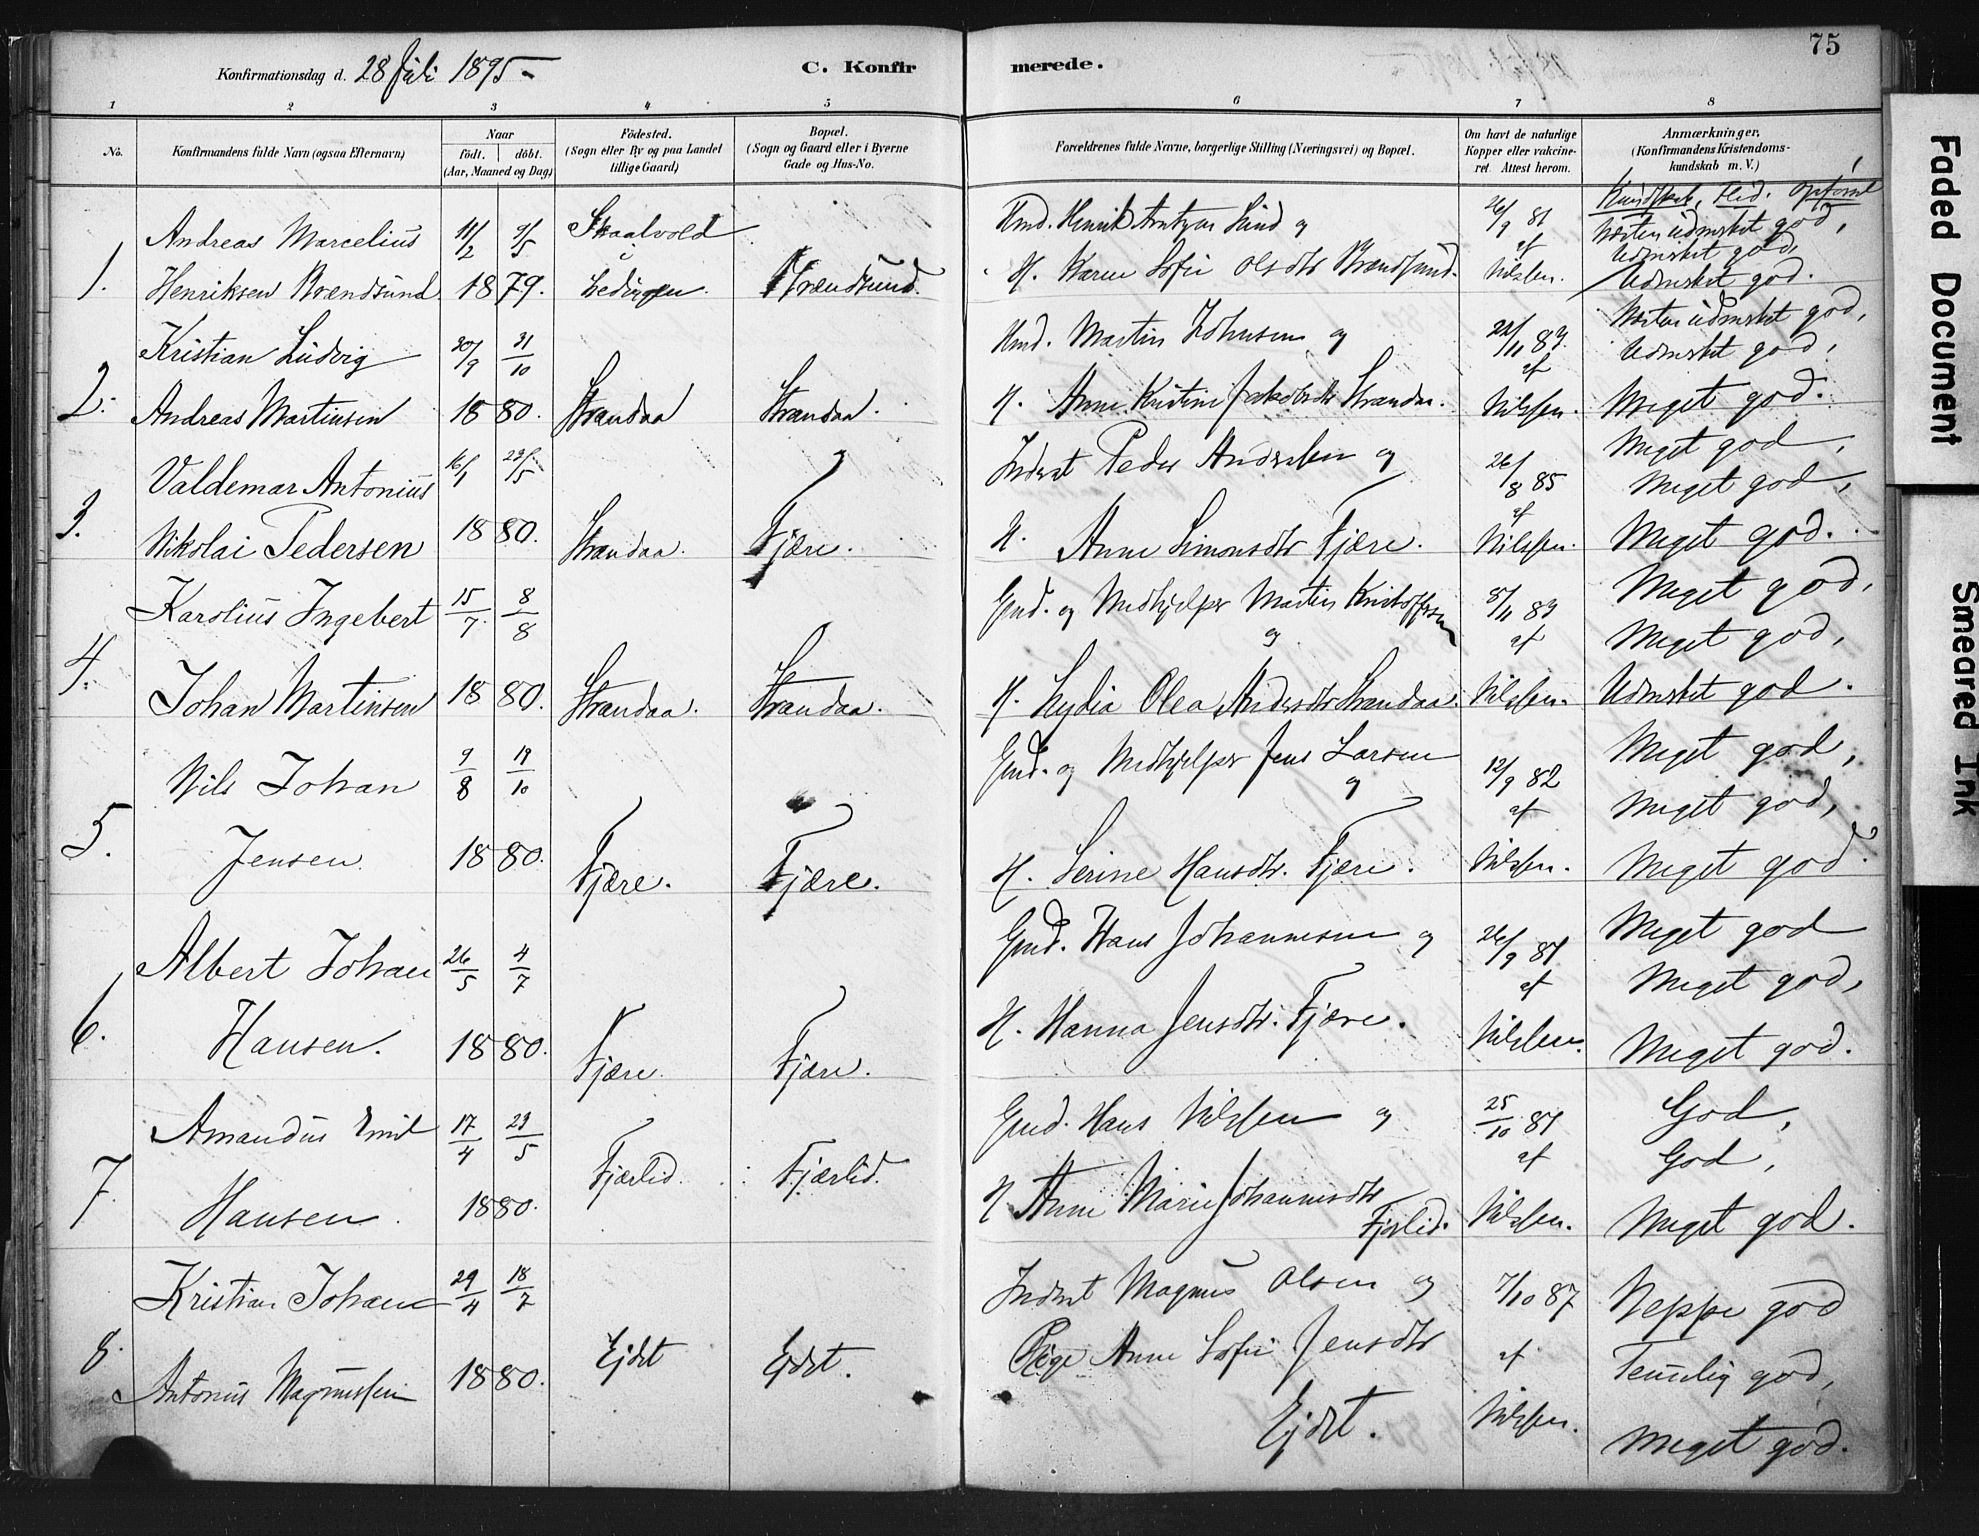 75
Konfirmationsdag d. 28 Juli 1895 -
C. Konfirmerede.
1 2 3 4 5 6 7 8
No.
Konfirmandens fulde Navn (ogsaa Efternavn)
Naar
födt. döbt.
(Aar, Maaned og Dag)
Födested.
(Sogn eller By og paa Landet
tillige Gaard)
Bopæl.
(Sogn og Gaard eller i Byerne
Gade og Hus-No.
Forældrenes fulde Navne, borgerlige Stilling (Næringsvei) og Bopæl.
Om havt de naturlige
Kopper eller vakcine-
ret Attest herom.
Anmærkninger.
(Konfirmandens Kristendoms-
kundskab m. V.)
Kundskab, Flid,
1.
Andreas Marcelius
Henriksen
11/2 9/5
1879.
Skaalvold
Henrik
Karen Sofie Olsdtr
26/9 81
af
Nilssen.
Næsten udmerket god,
Udmerket god,
Udmerket god.
2.
Kristian Ludvig
Andreas Martinsen
20/9 31/10
1880.
Strandaa
Strandaa.
Martin Johnsen og
H. Anne Kristine Jakobsdtr Strandaa.
af
Nilssen.
Næsten udmerket god,
Udmerket god,
Meget god.
3.
Valdemar Antonius
Nikolai Pedersen
16/1 23/5
1880.
Strandaa.
Fjære.
Inderst Peder Andersen og
H. Anne Simonsdtr Fjære.
26/8 85
af
Nilssen.
Meget god,
Meget god,
Meget god.
4.
Karolius Ingebert
Johan Martinsen
15/7 8/8
1880.
Strandaa.
Strandaa.
Gmd. og Medhjelper Martin Kristoffersen
og
H. Lydia Olea Andersdtr Strandaa.
8/11 89
af
Nilssen.
Meget god,
Meget god,
Udmerket god.
5.
Nils Johan
Jensen
9/8 19/10
1880.
Fjære.
Fjære.
Gmd. og Medhjelper Jens Larsen
og
H. Serine Hansdtr. Fjære.
12/9 82
af
Nilssen.
Meget god,
Meget god,
Meget god.
6.
Albert Johan
Hansen.
26/5 4/7
1880.
Fjære.
Fjære.
Gmd. Hans Johannesen og
H. Hanna Jensdtr. Fjære.
26/9 81
af
Nilssen.
Meget god
Meget god,
Meget god.
7.
Amandus Emil
Hansen
17/4 23/5
1880.
Fjærlid.
Fjærlid.
Gmd. Hans Nilssen og
H Anne Marie Johannesdtr
Fjærlid.
25/10 81
af
Nilssen.
God,
God,
Meget god.
8.
Kristian Johan
Antonius Magnussen
29/4 18/7
1880.
Ejdet
Ejdet.
Inderst Magnus Olsen og
Pige Anne Sofie Jensdtr
Ejdet.
7/10 87
af
Nilssen.
Neppe god
Temlig god,
Meget god.
Faded Document
Smeared Ink